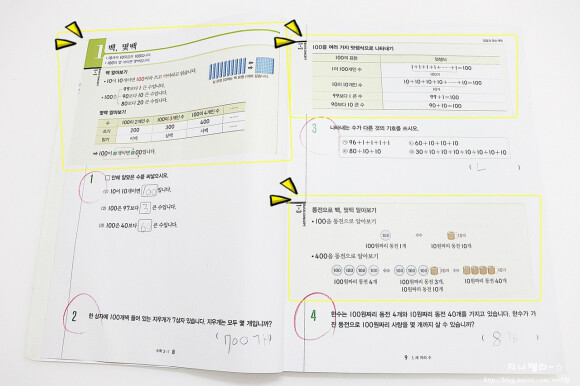 1 백, 몇백
백 알아보기
• 10이 10개이면 100이라 쓰고 백이라고 읽습니다.
• 100은 99보다 1 큰 수입니다.
90보다 10 큰 수입니다.
80보다 20 큰 수입니다.
몇백 알아보기
수 100이 2개인 수 100이 3개인 수 100이 4개인 수 ……
쓰기 200 300 400 ……
읽기 이백 삼백 사백 ……
1 □ 안에 알맞은 수를 써넣으시오.
(1) 10이 10개이면 100입니다.
(2) 100은 97보다 3 큰 수입니다.
(3) 100은 40보다 60 큰 수입니다.
2 한 상자에 100개씩 들어 있는 지우개가 7상자 있습니다. 지우개는 모두 몇 개입니까?
( 700개 )
수학 2-1 8
1-1
100을 여러 가지 덧셈식으로 나타내기
100의 표현 덧셈식
1이 100개인 수 1+1+1+1+……+1=100
10이 10개인 수 10+10+10+……+10=100
99보다 1 큰 수 99+1=100
90보다 10 큰 수 90+10=100
3 나타내는 수가 다른 것의 기호를 쓰시오.
㉠ 96+1+1+1+1 ㉡ 60+10+10+10
㉢ 80+10+10 ㉣ 30+10+10+10+10+10+10+10
( ㄴ )
1-2
동전으로 백, 몇백 알아보기
• 100을 동전으로 알아보기
100원짜리 동전 1개 10원짜리 동전 10개
• 400을 동전으로 알아보기
100원짜리 동전 4개 100원짜리 동전 3개, 10원짜리 동전 40개
10원짜리 동전 10개
4 현수는 100원짜리 동전 4개와 10원짜리 동전 40개를 가지고 있습니다. 현수가 가
진 동전으로 100원짜리 사탕을 몇 개까지 살 수 있습니까?
( 8개 )
9 1. 세 자리 수